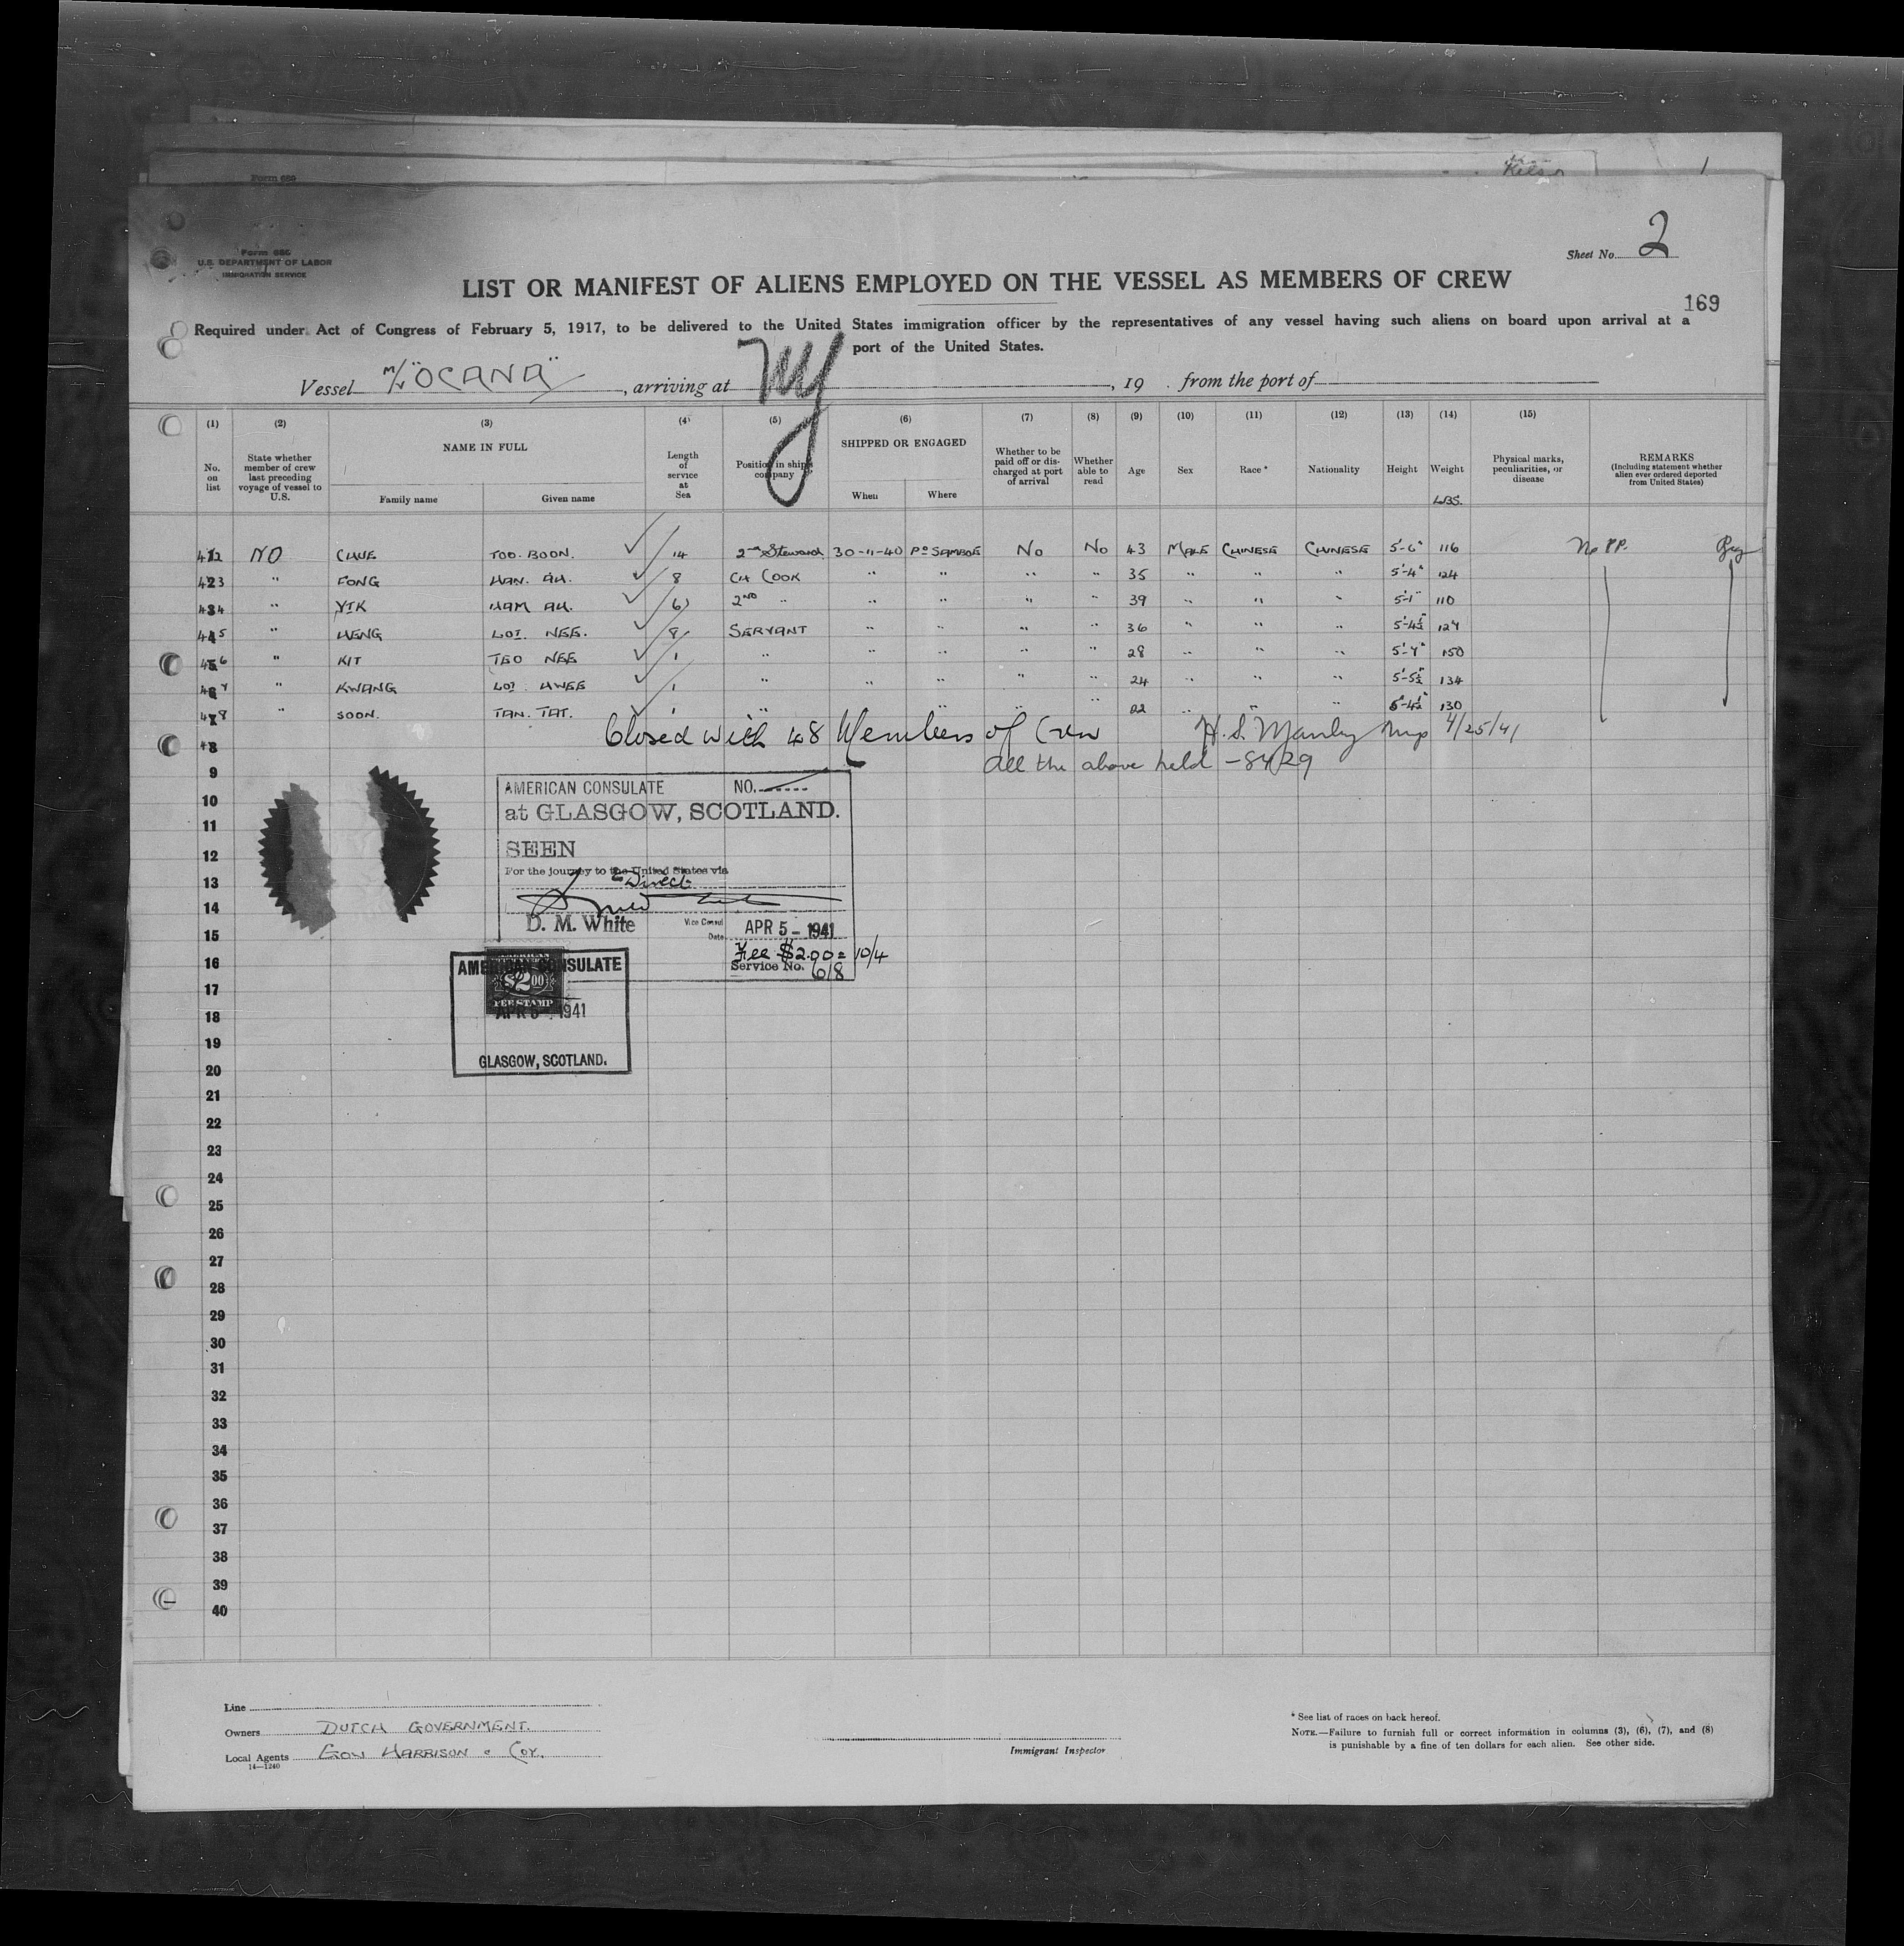 Kelso
1
Form 686
Form 686
U.S. DEPARTMENT OF LABOR
IMMIGRATION SERVICE
Sheet No. 2
LIST OR MANIFEST OF ALIENS EMPLOYED ON THE VESSEL AS MEMBERS OF CREW
169
Required under Act of Congress of February 5, 1917, to be delivered to the United States immigration officer by the representatives of any vessel having such aliens on board upon arrival at a
port of the United States.
Vessel M/V "OCANA", arriving at NY, 19 . from the port of
(1) (2) (3) (4) (5) (6) (7) (8) (9) (10) (11) (12) (13) (14) (15)
No. on list
State whether member of crew last preceding voyage of vessel to U.S.
NAME IN FULL
Family name Given name
Length of service at Sea
Position in ship's company
SHIPPED OR ENGAGED
When Where
Whether to be paid off or discharged at port of arrival
Whether able to read
Age Sex Race * Nationality Height Weight LBS.
Physical marks, peculiarities, or disease
REMARKS
(Including statement whether alien ever ordered deported from United States)
42 NO TOO. BOON. 14 2nd Steward 30-11-40 Po SAMBOE No No 43 MALE CHINESE CHINESE 5'-6" 116 No PP.
43 " FONG HAN. AH. 8 CH COOK " " " " 35 " " " 5'-4" 124
44 " YIK HAM AH. 6 2ND " " " " " 39 " " " 5'-1" 110
45 " HENG LOI. NEE. 8 SERVANT " " " " 36 " " " 5'-4½"
46 " KIT TEO NEE 1 " " " " " 28 " " " 150
47 " KWANG LOI. HWEE 1 " " " " " 24 " " " 5'-5½" 134
48 " SOON. TAN. TAT. 1 " " " 22 " " " 5'-4½" 130
Closed with 48 Members of Crew H. S. Manley Insp 4/25/41
all the above held -
8
9
10
11
12
13
14
15
16
17
18
19
20
21
22
23
24
25
26
27
28
29
30
31
32
33
34
35
36
37
38
39
40
AMERICAN CONSULATE NO.
at GLASGOW, SCOTLAND.
SEEN
For the journey to the United States via
Direct
D. M. White Vice Consul
Date APR 5 - 1941
Fee $2.00 = 10/4
Service No. 618
AMERICAN CONSULATE
$2.00
FEE STAMP
APR 5 - 1941
GLASGOW, SCOTLAND.
Line
Owners DUTCH GOVERNMENT.
Local Agents GOW HARRISON & COY.
14—1240
Immigrant Inspector
* See list of races on back hereof.
NOTE.—Failure to furnish full or correct information in columns (3), (6), (7), and (8)
is punishable by a fine of ten dollars for each alien. See other side.